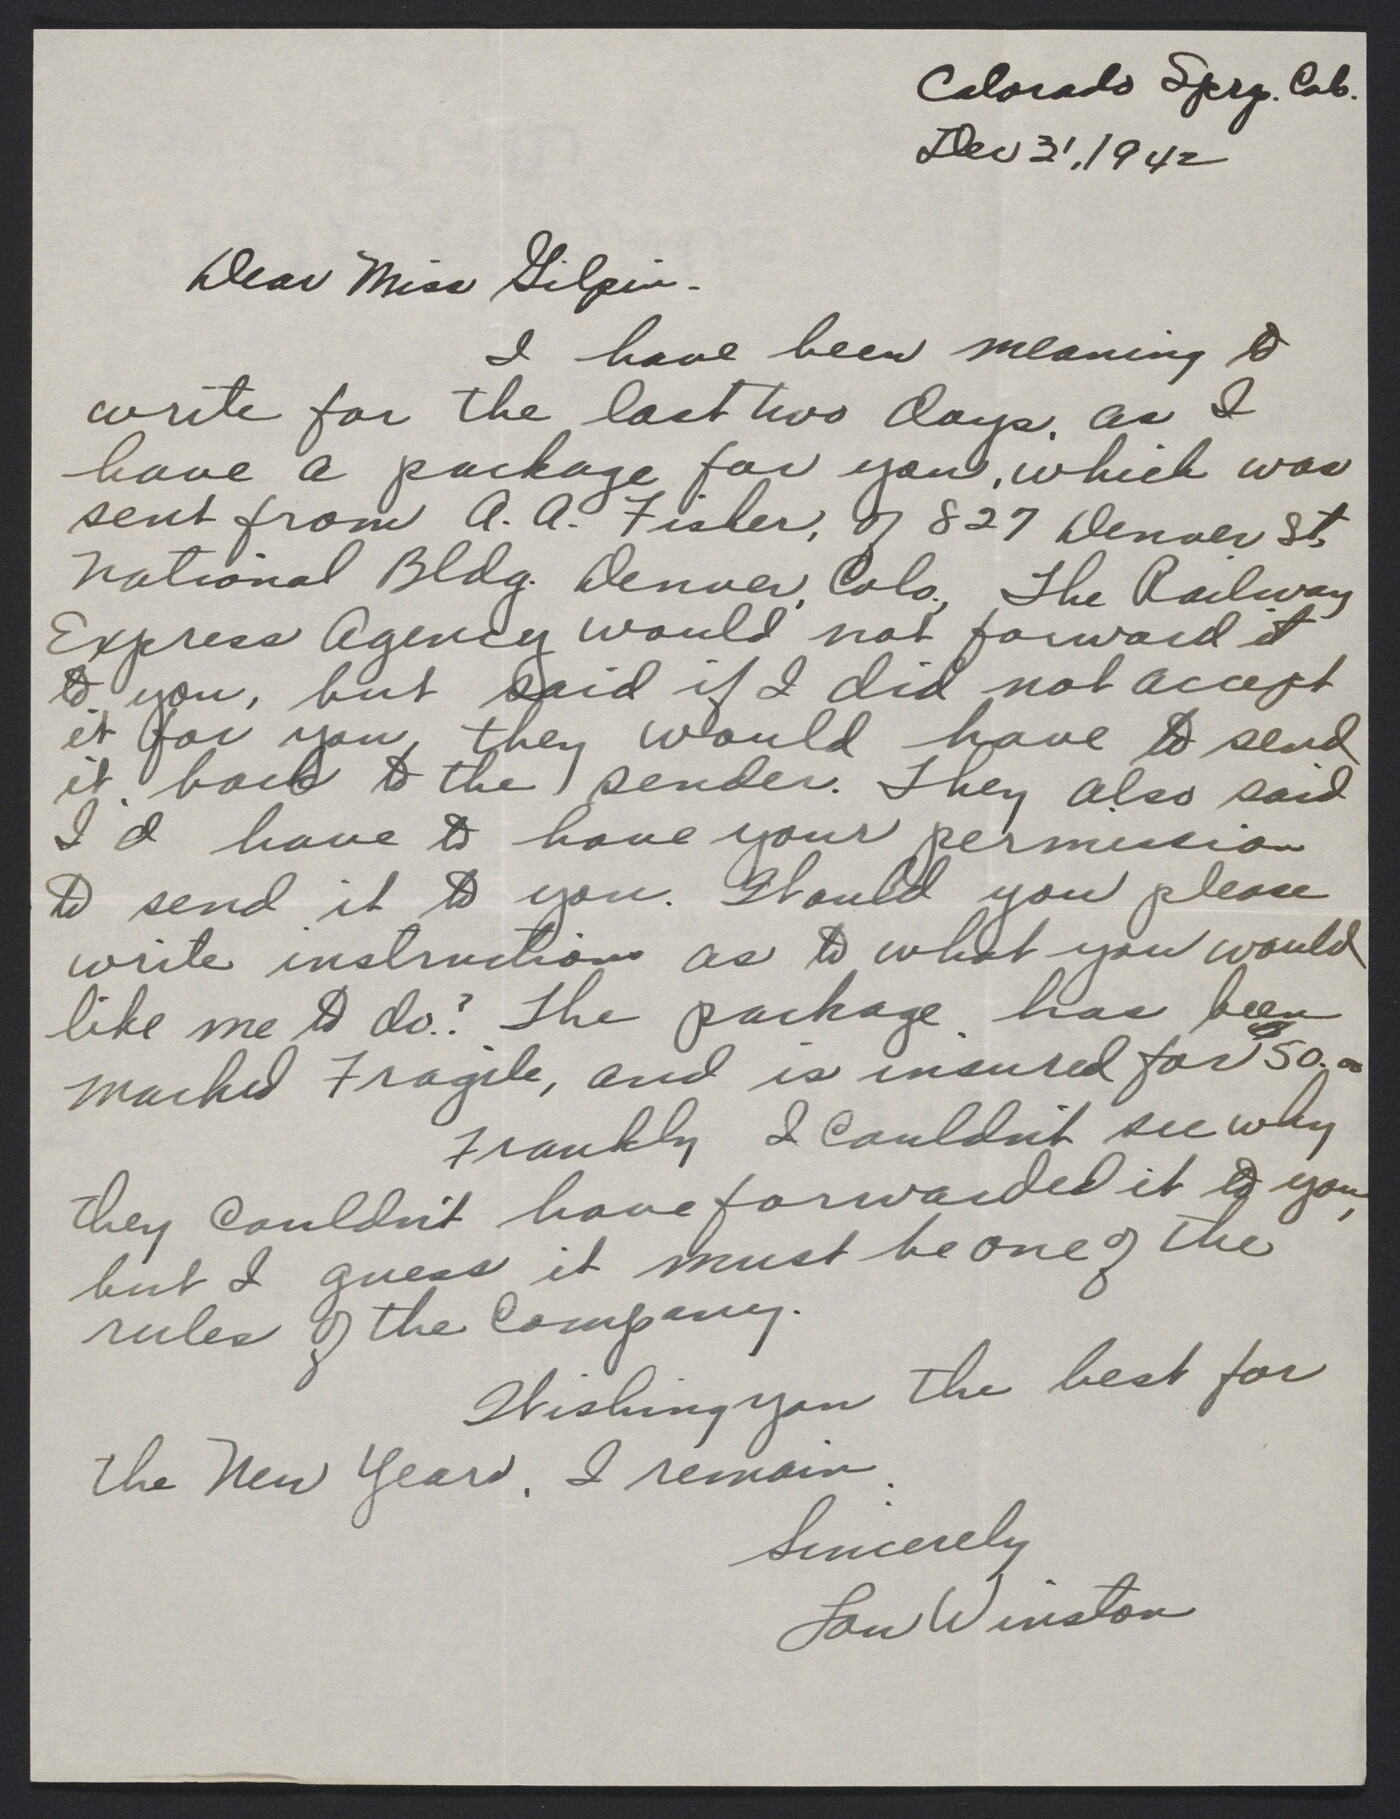 Colorado Sprg. Col.
Dec 31, 1942
Dear Miss Gilpin -
I have been meaning to
write for the last two days, as I
have a package for you, which was
sent from A. A. Fisher, of 827 Denver St,
National Bldg. Denver, Colo., The Railway
Express Agency would not forward it
to you, but said if I did not accept
it for you, they would have to send
it back to the sender. They also said
I'd have to have your permission
to send it to you. Would you please
write instructions as to what you would
like me to do.? The package has been
marked Fragile, and is insured for $50.00
Frankly I couldn't see why
they couldn't have forwarded it to you,
but I guess it must be one of the
rules of the Company.
Wishing you the best for
the New Year, I remain.
Sincerely
Lou Winston